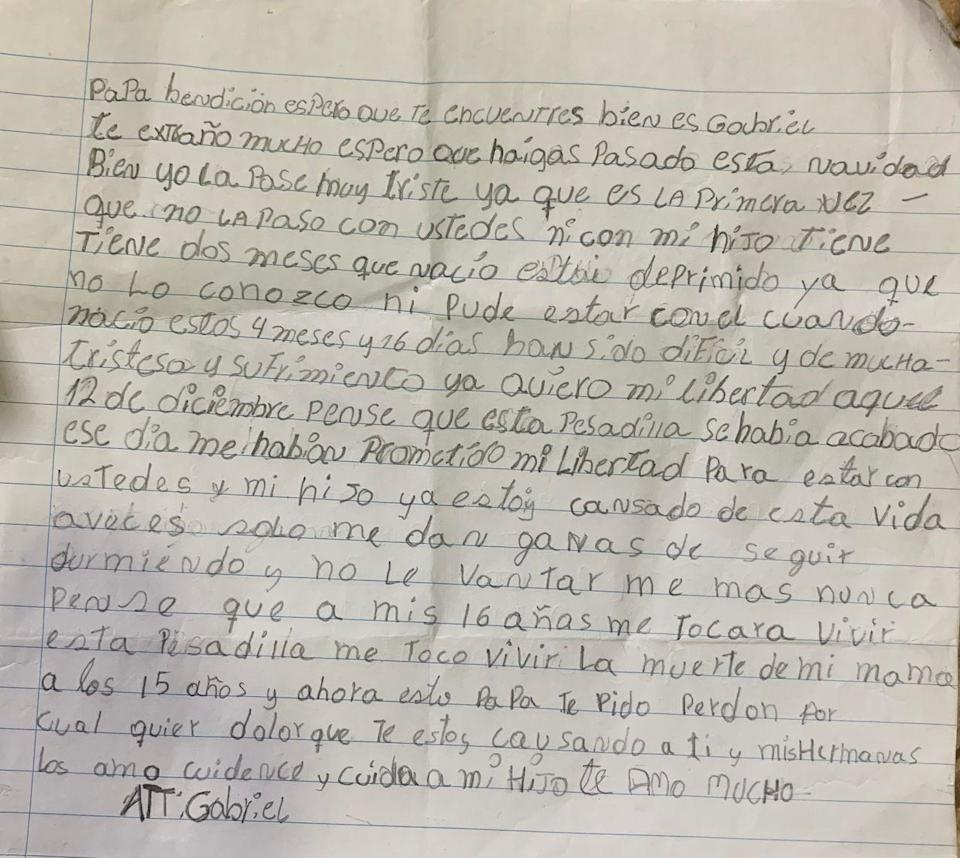 PaPa bendición esPero que Te encuentres bien es Gabriel
te extraño mucHo esPero que haigas Pasado esta navidad
Bien yo La Pase muy triste ya que es LA Primera vez -
que no LA Paso con ustedes ni con mi hiJo Tiene
Tiene dos meses que nacio estoi deprimido ya que
no Lo conozco ni Pude estar con el cuando-
nacio estos 4 meses y 16 dias han sido dificil y de mucHa-
tristesa y sufrimiento ya quiero mi Libertad aquel
12 de diciembre Pense que esta Pesadilla se habia acabado
ese dia me habian Prometido mi Libertad Para estar con
ustedes y mi hiJo ya estoy cansado de esta vida
aveces solo me dan ganas de seguir
durmiendo y no Le vantar me mas nunca
Pense que a mis 16 años me Tocara vivir
esta Pesadilla me Toco vivir La muerte de mi mama
a los 15 años y ahora esto PaPa Te Pido Perdon Por
cual quier dolor que Te estoy causando a ti y mis Hermanas
los amo cuidence y cuida a mi HiJo te AMO MUCHO-
ATT: Gabriel